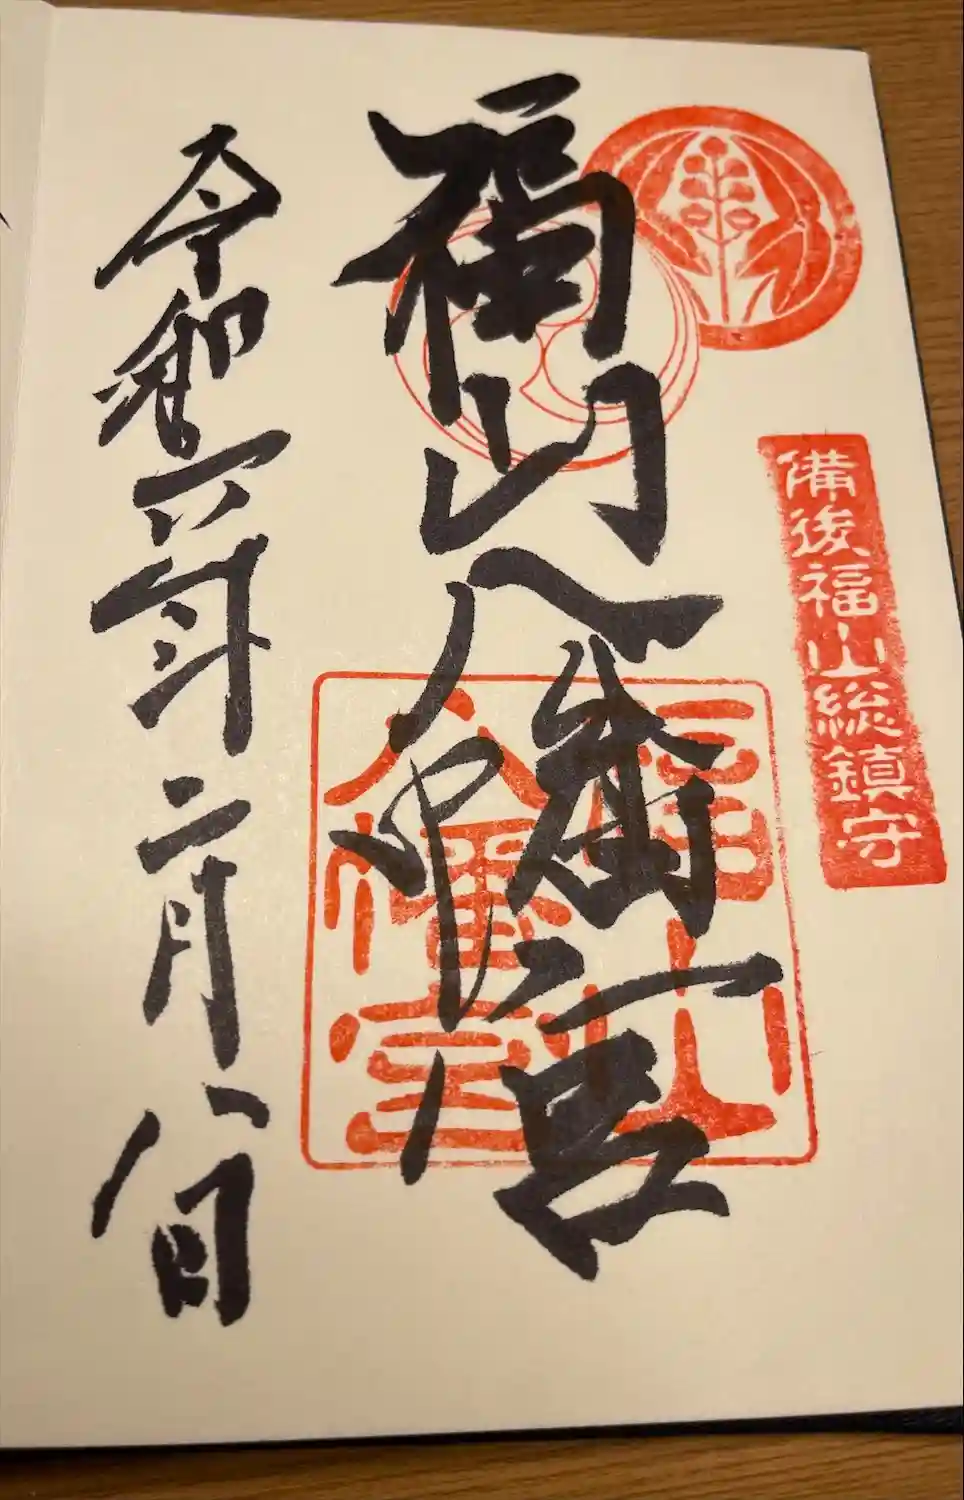 備後福山総鎮守
福山八幡宮
福山八幡宮
令和六年二月八日